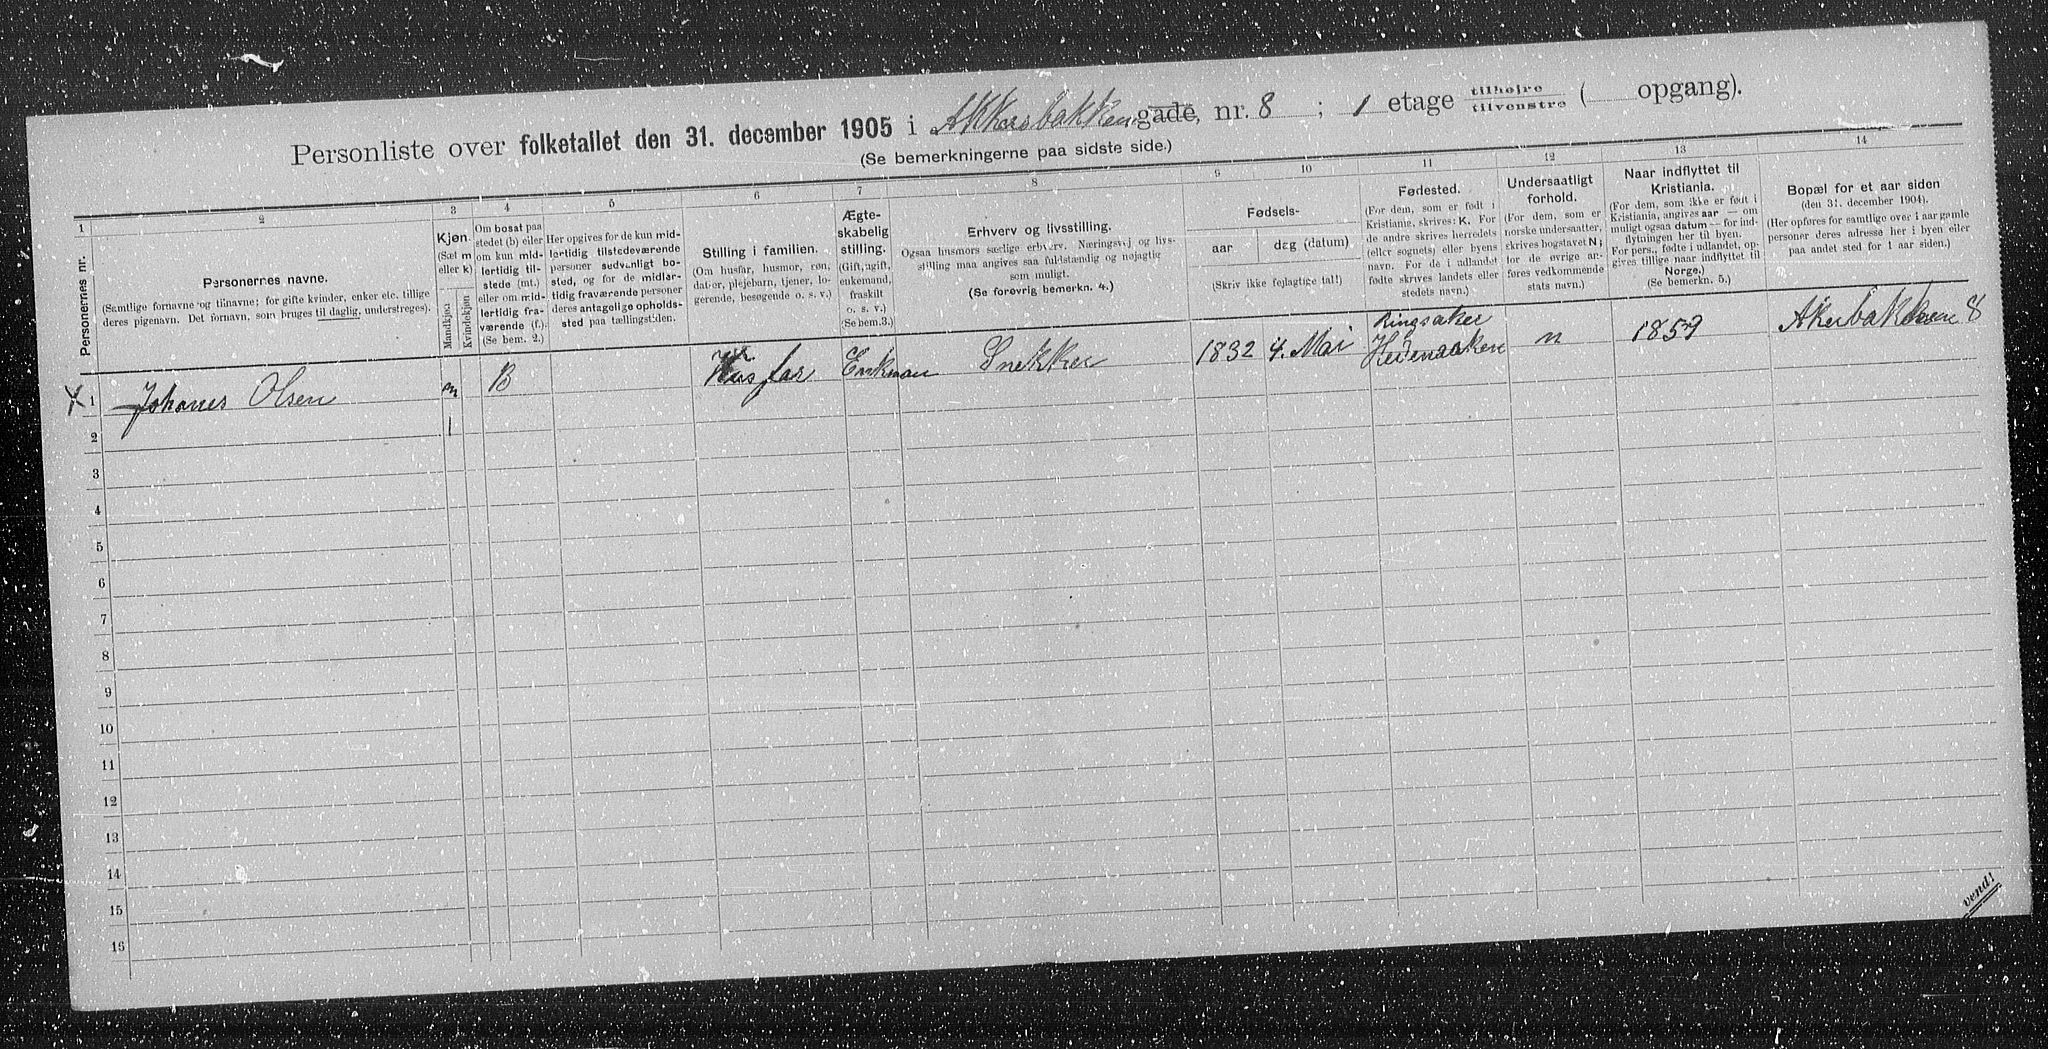 Personliste over folketallet den 31. december 1905 i Akkersbakken gade, nr. 8 ; 1 etage tilhøjre tilvenstre ( opgang).
(Se bemerkningerne paa sidste side.)
1 2 3 4 5 6 7 8 9 10 11 12 13 14
Personernes nr.
Personernes navne.
(Samtlige fornavne og tilnavne; for gifte kvinder, enker etc. tillige
deres pigenavn. Det fornavn, som bruges til daglig, understreges).
Kjøn.
(Sæt m
eller k)
Mandkjøn
Kvindekjøn
Om bosat paa
stedet (b) eller
om kun mid-
lertidig til-
stede (mt.)
eller om mid-
lertidig fra-
værende (f.).
(Se bem. 2.)
Her opgives for de kun mid-
lertidig tilstedeværende
personer sedvanligt bo-
sted, og for de midler-
tidig fraværende personer
deres antagelige opholds-
sted paa tællingstiden.
Stilling i familien.
(Om husfar, husmor, søn,
datter, plejebarn, tjener, lo-
gerende, besøgende o. s. v.)
Ægte-
skabelig
stilling.
(Gift, ugift,
enkemand,
fraskilt
o. s. v.)
(Se bem. 3.)
Erhverv og livsstilling.
Ogsaa husmors særlige erhverv. Næringsvej og livs-
stilling maa angives saa fuldstændig og nøjagtig
som muligt.
(Se forøvrig bemerkn. 4.)
Fødsels-
aar dag (datum)
(Skriv ikke fejlagtige tal!)
Fødested.
(For dem, som er født i
Kristiania, skrives: K. For
de andre skrives herredets
(eller sognets) eller byens
navn. For de i udlandet
fødte skrives landets eller
stedets navn.)
Undersaatligt
forhold.
(For dem, som er
norske undersaatter,
skrives bogstavet N;
for de øvrige an-
føres vedkommende
stats navn.)
Naar indflyttet til
Kristiania.
(For dem, som ikke er født i
Kristiania, angives aar — om
muligt ogsaa datum — for ind-
flytningen her til byen.
For pers., fødte i udlandet, op-
gives tillige naar indflyttet til
Norge.)
(Se bemerkn. 5.)
Bopæl for et aar siden
(den 31. december 1904).
(Her opføres for samtlige over 1 aar gamle
personer deres adresse her i byen eller
paa andet sted for 1 aar siden.)
X 1 Johanes Olsen m B Husfar Enkman Snekker 1832 4. Mai Ringsaker Hedemarken n 1859 Akerbakkene 8
2 1
3
4
5
6
7
8
9
10
11
12
13
14
15
16
vend!